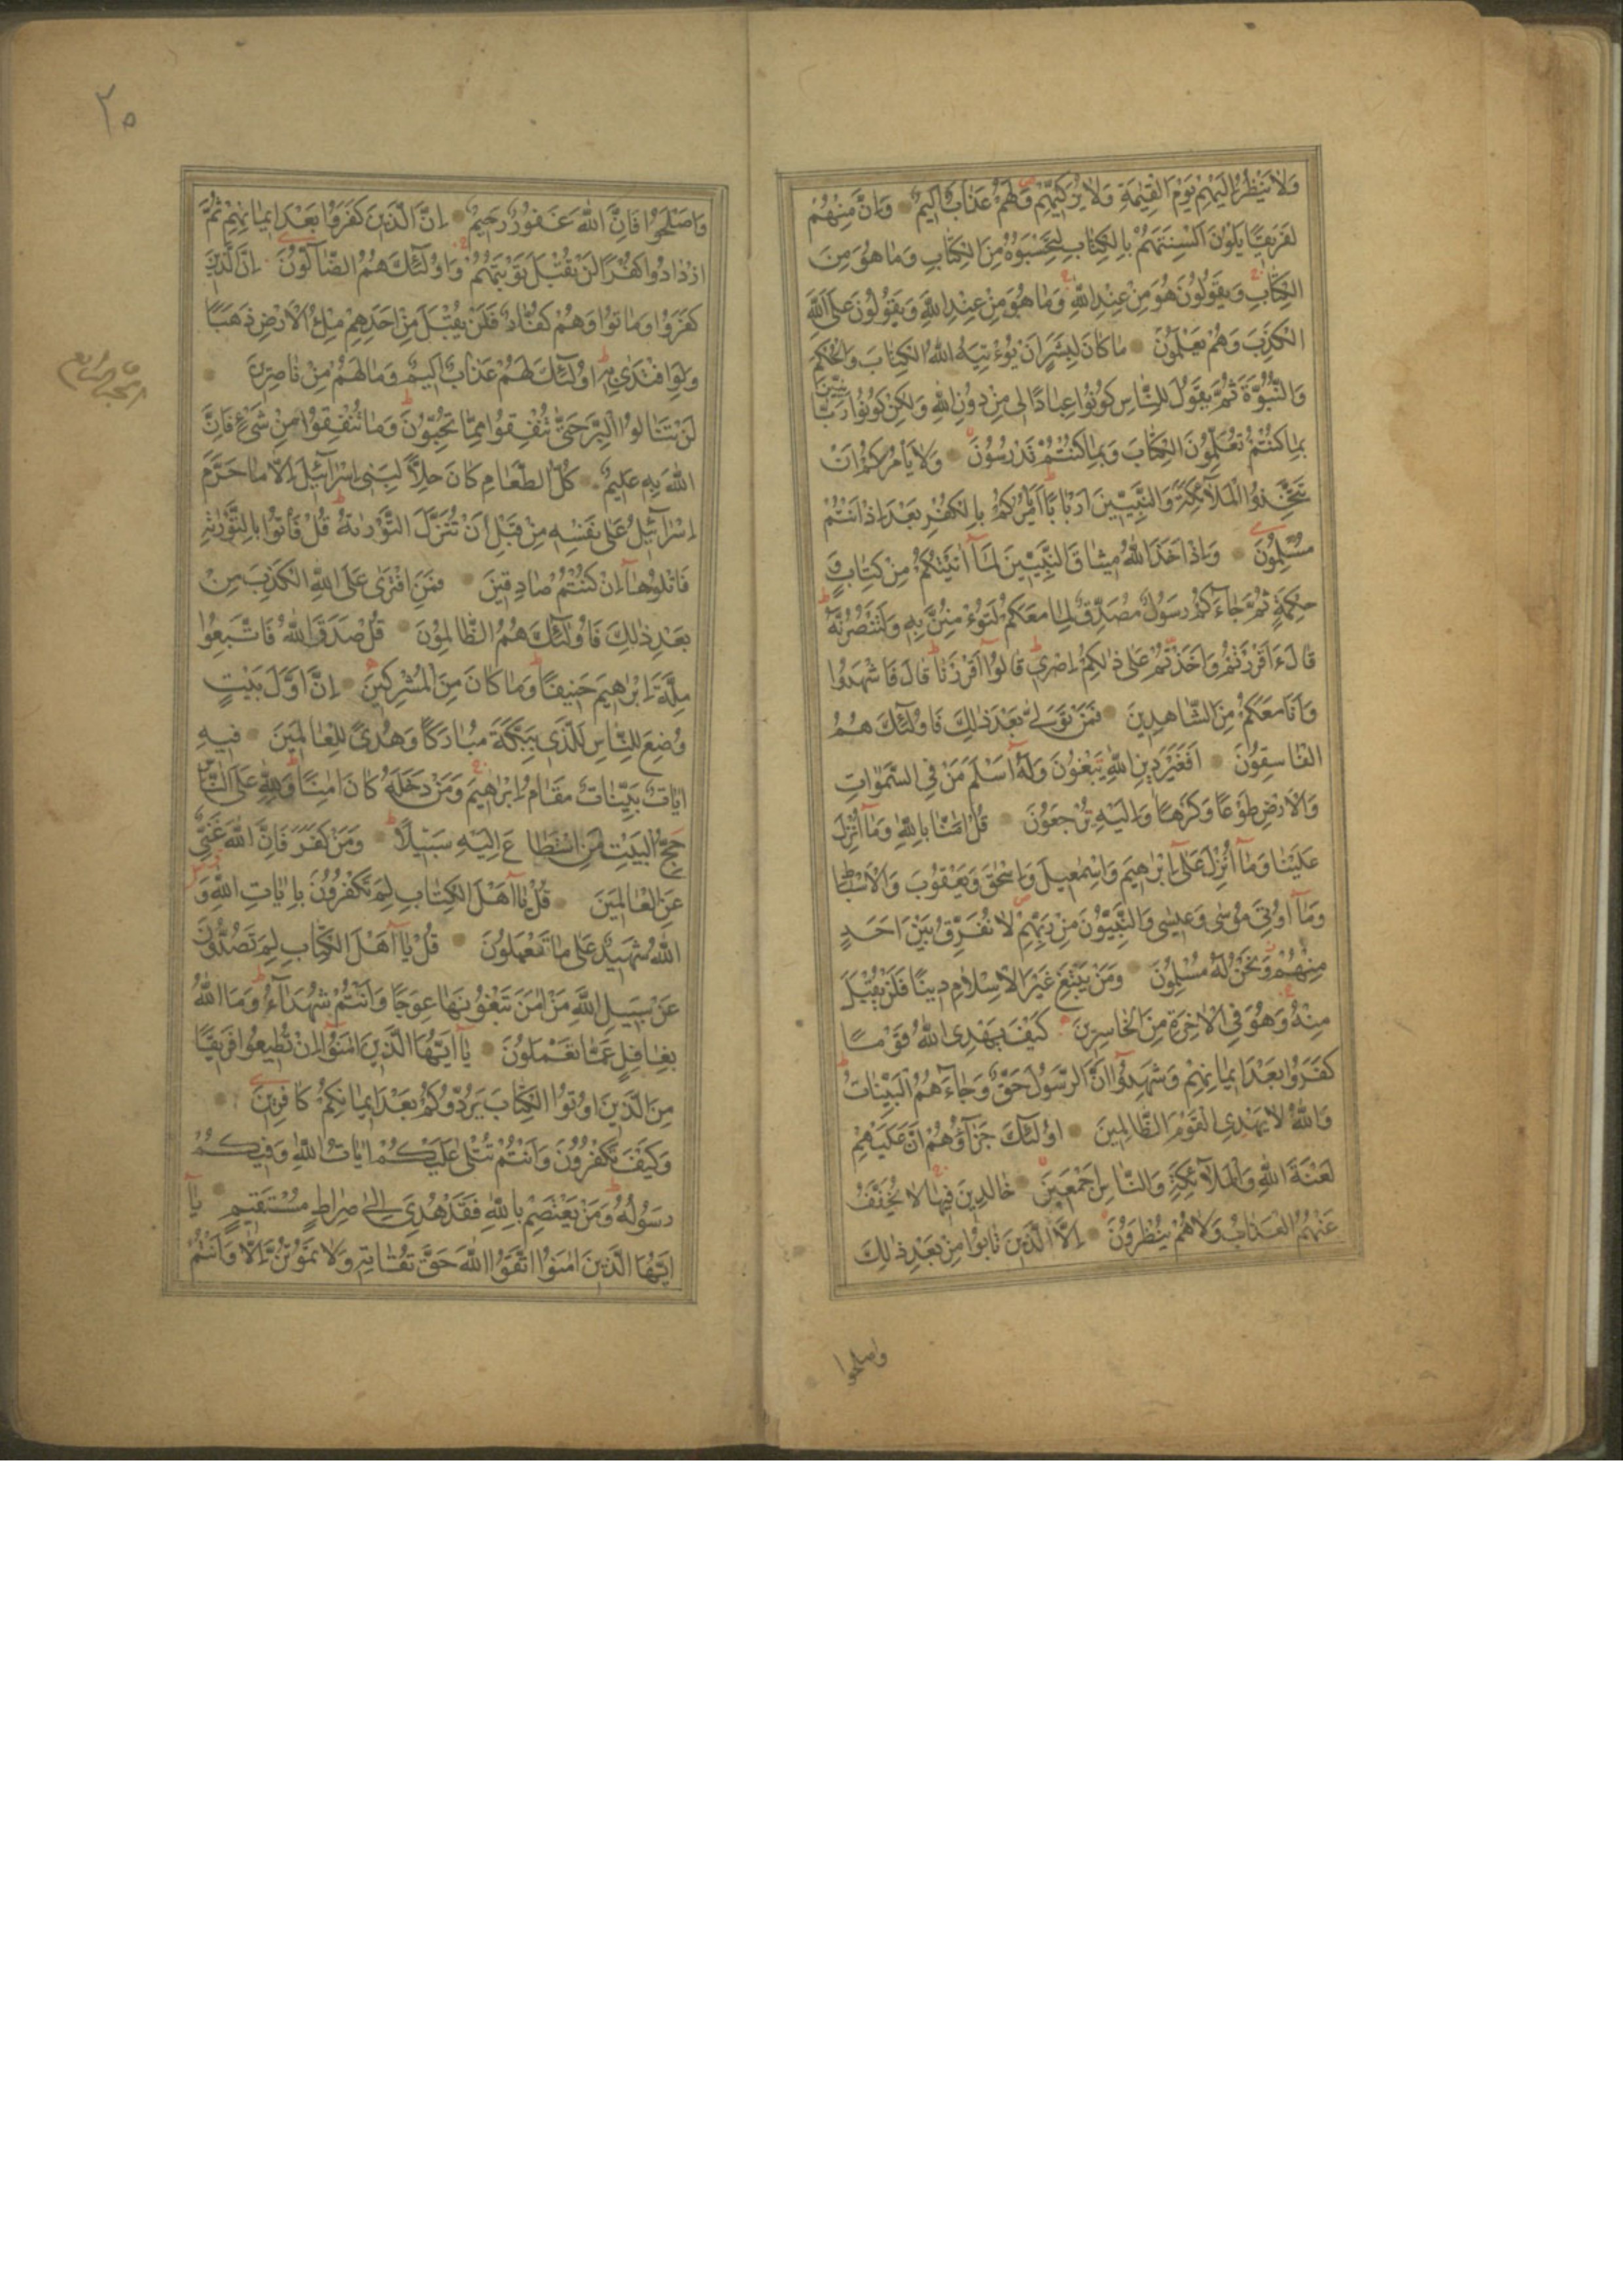 وَلَا يَنْظُرُ اِلَيْهِمْ يَوْمَ الْقِيٰمَةِ وَلَا يُزَكِّيْهِمْ وَلَهُمْ عَذَابٌ اَلِيمٌ وَاِنَّ مِنْهُمْ
لَفَرِيقًا يَلْوُنَ اَلْسِنَتَهُمْ بِالْكِتَابِ لِتَحْسَبُوهُ مِنَ الْكِتَابِ وَمَا هُوَ مِنَ
الْكِتَابِ وَيَقُولُونَ هُوَ مِنْ عِنْدِ اللّٰهِ وَمَا هُوَ مِنْ عِنْدِ اللّٰهِ وَيَقُولُونَ عَلَى اللّٰهِ
الْكَذِبَ وَهُمْ يَعْلَمُونَ مَا كَانَ لِبَشَرٍ اَنْ يُؤْتِيَهُ اللّٰهُ الْكِتَابَ وَالْحُكْمَ
وَالنُّبُوَّةَ ثُمَّ يَقُولَ لِلنَّاسِ كُونُوا عِبَادًا لِى مِنْ دُونِ اللّٰهِ وَلٰكِنْ كُونُوا رَبَّانِيّٖنَ
بِمَا كُنْتُمْ تُعَلِّمُونَ الْكِتَابَ وَبِمَا كُنْتُمْ تَدْرُسُونَ وَلَا يَأْمُرَكُمْ اَنْ
تَتَّخِذُوا الْمَلَآئِكَةَ وَالنَّبِيّٖنَ اَرْبَابًا اَيَأْمُرُكُمْ بِالْكُفْرِ بَعْدَ اِذْ اَنْتُمْ
مُسْلِمُونَ وَاِذْ اَخَذَ اللّٰهُ مِيثَاقَ النَّبِيّٖنَ لَمَآ اٰتَيْتُكُمْ مِنْ كِتَابٍ وَ
حِكْمَةٍ ثُمَّ جَآءَكُمْ رَسُولٌ مُصَدِّقٌ لِمَا مَعَكُمْ لَتُؤْمِنُنَّ بِهِ وَلَتَنْصُرُنَّهُ
قَالَ ءَاَقْرَرْتُمْ وَاَخَذْتُمْ عَلٰى ذٰلِكُمْ اِصْرِى قَالُوٓا اَقْرَرْنَا قَالَ فَاشْهَدُوا
وَاَنَا مَعَكُمْ مِنَ الشَّاهِدِينَ فَمَنْ تَوَلّٰى بَعْدَ ذٰلِكَ فَاُولٰٓئِكَ هُمُ
الْفَاسِقُونَ اَفَغَيْرَ دِينِ اللّٰهِ يَبْغُونَ وَلَهٓ اَسْلَمَ مَنْ فِى السَّمٰوَاتِ
وَالْاَرْضِ طَوْعًا وَكَرْهًا وَاِلَيْهِ تُرْجَعُونَ قُلْ اٰمَنَّا بِاللّٰهِ وَمَآ اُنْزِلَ
عَلَيْنَا وَمَآ اُنْزِلَ عَلٰٓى اِبْرٰهِيمَ وَاِسْمٰعِيلَ وَاِسْحٰقَ وَيَعْقُوبَ وَالْاَسْبَاطِ
وَمَآ اُوتِىَ مُوسٰى وَعِيسٰى وَالنَّبِيُّونَ مِنْ رَبِّهِمْ لَا نُفَرِّقُ بَيْنَ اَحَدٍ
مِنْهُمْ وَنَحْنُ لَهُ مُسْلِمُونَ وَمَنْ يَبْتَغِ غَيْرَ الْاِسْلَامِ دِينًا فَلَنْ يُقْبَلَ
مِنْهُ وَهُوَ فِى الْاٰخِرَةِ مِنَ الْخَاسِرِينَ كَيْفَ يَهْدِى اللّٰهُ قَوْمًا
كَفَرُوا بَعْدَ اِيمَانِهِمْ وَشَهِدُوٓا اَنَّ الرَّسُولَ حَقٌّ وَجَآءَهُمُ الْبَيِّنَاتُ
وَاللّٰهُ لَا يَهْدِى الْقَوْمَ الظَّالِمِينَ اُولٰٓئِكَ جَزَآؤُهُمْ اَنَّ عَلَيْهِمْ
لَعْنَةَ اللّٰهِ وَالْمَلَآئِكَةِ وَالنَّاسِ اَجْمَعِينَ خَالِدِينَ فِيهَا لَا يُخَفَّفُ
عَنْهُمُ الْعَذَابُ وَلَا هُمْ يُنْظَرُونَ اِلَّا الَّذِينَ تَابُوا مِنْ بَعْدِ ذٰلِكَ
واصلحوا
٢٥
وَاَصْلَحُوا فَاِنَّ اللّٰهَ غَفُورٌ رَحِيمٌ اِنَّ الَّذِينَ كَفَرُوا بَعْدَ اِيمَانِهِمْ ثُمَّ
ازْدَادُوا كُفْرًا لَنْ تُقْبَلَ تَوْبَتُهُمْ وَاُولٰٓئِكَ هُمُ الضَّآلُّونَ اِنَّ الَّذِينَ
كَفَرُوا وَمَاتُوا وَهُمْ كُفَّارٌ فَلَنْ يُقْبَلَ مِنْ اَحَدِهِمْ مِلْءُ الْاَرْضِ ذَهَبًا
وَلَوِ افْتَدٰى بِهِ اُولٰٓئِكَ لَهُمْ عَذَابٌ اَلِيمٌ وَمَا لَهُمْ مِنْ نَاصِرِينَ
لَنْ تَنَالُوا الْبِرَّ حَتّٰى تُنْفِقُوا مِمَّا تُحِبُّونَ وَمَا تُنْفِقُوا مِنْ شَىْءٍ فَاِنَّ
اللّٰهَ بِهِ عَلِيمٌ كُلُّ الطَّعَامِ كَانَ حِلًّا لِبَنِى اِسْرَآئِيلَ اِلَّا مَا حَرَّمَ
اِسْرَآئِيلُ عَلٰى نَفْسِهِ مِنْ قَبْلِ اَنْ تُنَزَّلَ التَّوْرٰيةُ قُلْ فَأْتُوا بِالتَّوْرٰيةِ
فَاتْلُوهَآ اِنْ كُنْتُمْ صَادِقِينَ فَمَنِ افْتَرٰى عَلَى اللّٰهِ الْكَذِبَ مِنْ
بَعْدِ ذٰلِكَ فَاُولٰٓئِكَ هُمُ الظَّالِمُونَ قُلْ صَدَقَ اللّٰهُ فَاتَّبِعُوا
مِلَّةَ اِبْرٰهِيمَ حَنِيفًا وَمَا كَانَ مِنَ الْمُشْرِكِينَ اِنَّ اَوَّلَ بَيْتٍ
وُضِعَ لِلنَّاسِ لَلَّذِى بِبَكَّةَ مُبَارَكًا وَهُدًى لِلْعَالَمِينَ فِيهِ
اٰيَاتٌ بَيِّنَاتٌ مَقَامُ اِبْرٰهِيمَ وَمَنْ دَخَلَهُ كَانَ اٰمِنًا وَلِلّٰهِ عَلَى النَّاسِ
حِجُّ الْبَيْتِ مَنِ اسْتَطَاعَ اِلَيْهِ سَبِيلًا وَمَنْ كَفَرَ فَاِنَّ اللّٰهَ غَنِىٌّ
عَنِ الْعَالَمِينَ قُلْ يَآ اَهْلَ الْكِتَابِ لِمَ تَكْفُرُونَ بِاٰيَاتِ اللّٰهِ وَ
اللّٰهُ شَهِيدٌ عَلٰى مَا تَعْمَلُونَ قُلْ يَآ اَهْلَ الْكِتَابِ لِمَ تَصُدُّونَ
عَنْ سَبِيلِ اللّٰهِ مَنْ اٰمَنَ تَبْغُونَهَا عِوَجًا وَاَنْتُمْ شُهَدَآءُ وَمَا اللّٰهُ
بِغَافِلٍ عَمَّا تَعْمَلُونَ يَآ اَيُّهَا الَّذِينَ اٰمَنُوٓا اِنْ تُطِيعُوا فَرِيقًا
مِنَ الَّذِينَ اُوتُوا الْكِتَابَ يَرُدُّوكُمْ بَعْدَ اِيمَانِكُمْ كَافِرِينَ
وَكَيْفَ تَكْفُرُونَ وَاَنْتُمْ تُتْلٰى عَلَيْكُمْ اٰيَاتُ اللّٰهِ وَفِيكُمْ
رَسُولُهُ وَمَنْ يَعْتَصِمْ بِاللّٰهِ فَقَدْ هُدِىَ اِلٰى صِرَاطٍ مُسْتَقِيمٍ يَآ
اَيُّهَا الَّذِينَ اٰمَنُوا اتَّقُوا اللّٰهَ حَقَّ تُقَاتِهِ وَلَا تَمُوتُنَّ اِلَّا وَاَنْتُمْ